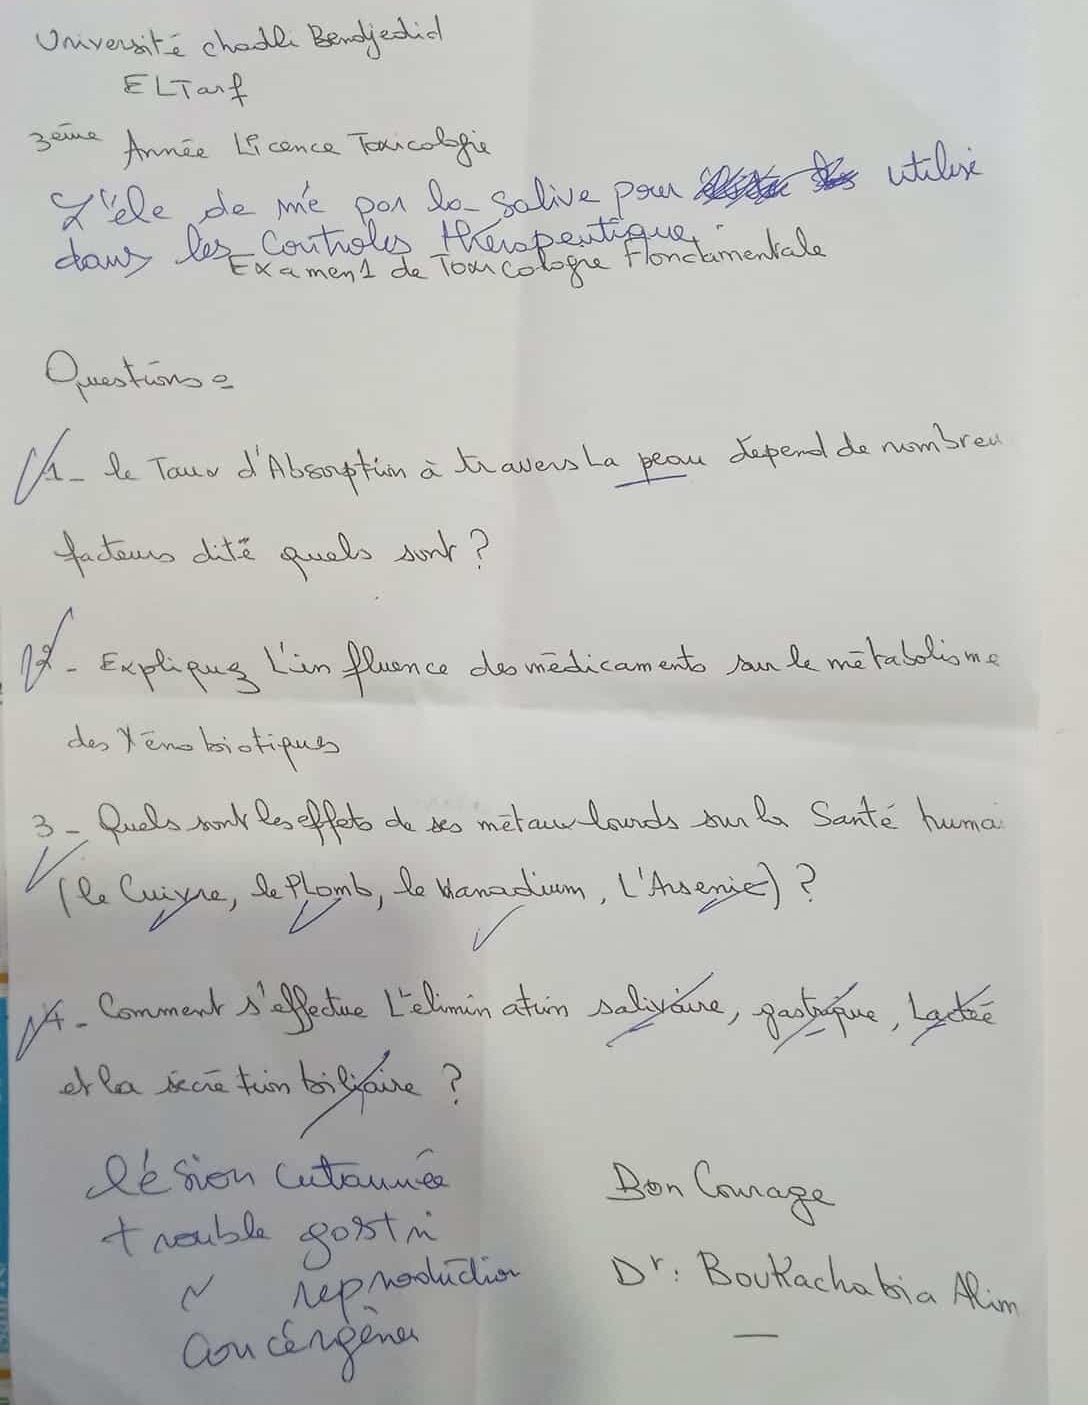 Université chadli Bendjedid
EL Tarf
3ème Année Licence Toxicologie
L'éle de mé par la salive pour utilise
dans les Controles thérapeutique
Examen 1 de Toxicologie Fondamentale
Questions =
1- le Taux d'Absorption à travers La peau dépend de nombreu
facteurs dité quels sont ?
2- Expliquez L'influence des médicaments sur le métabolisme
des Xénobiotiques
3- Quels sont les effets de ses métaux lourds sur la Santé huma
(le Cuivre, le Plomb, le Vanadium, L'Arsenic) ?
4- Comment s'effectue L'élimination salivaire, gastrique, Lactée
et la sécrétion biliaire ?
lésion cutannée
trouble gastri
" reproduction
concérgène
Bon Courage
Dr: Boukachabia Alim